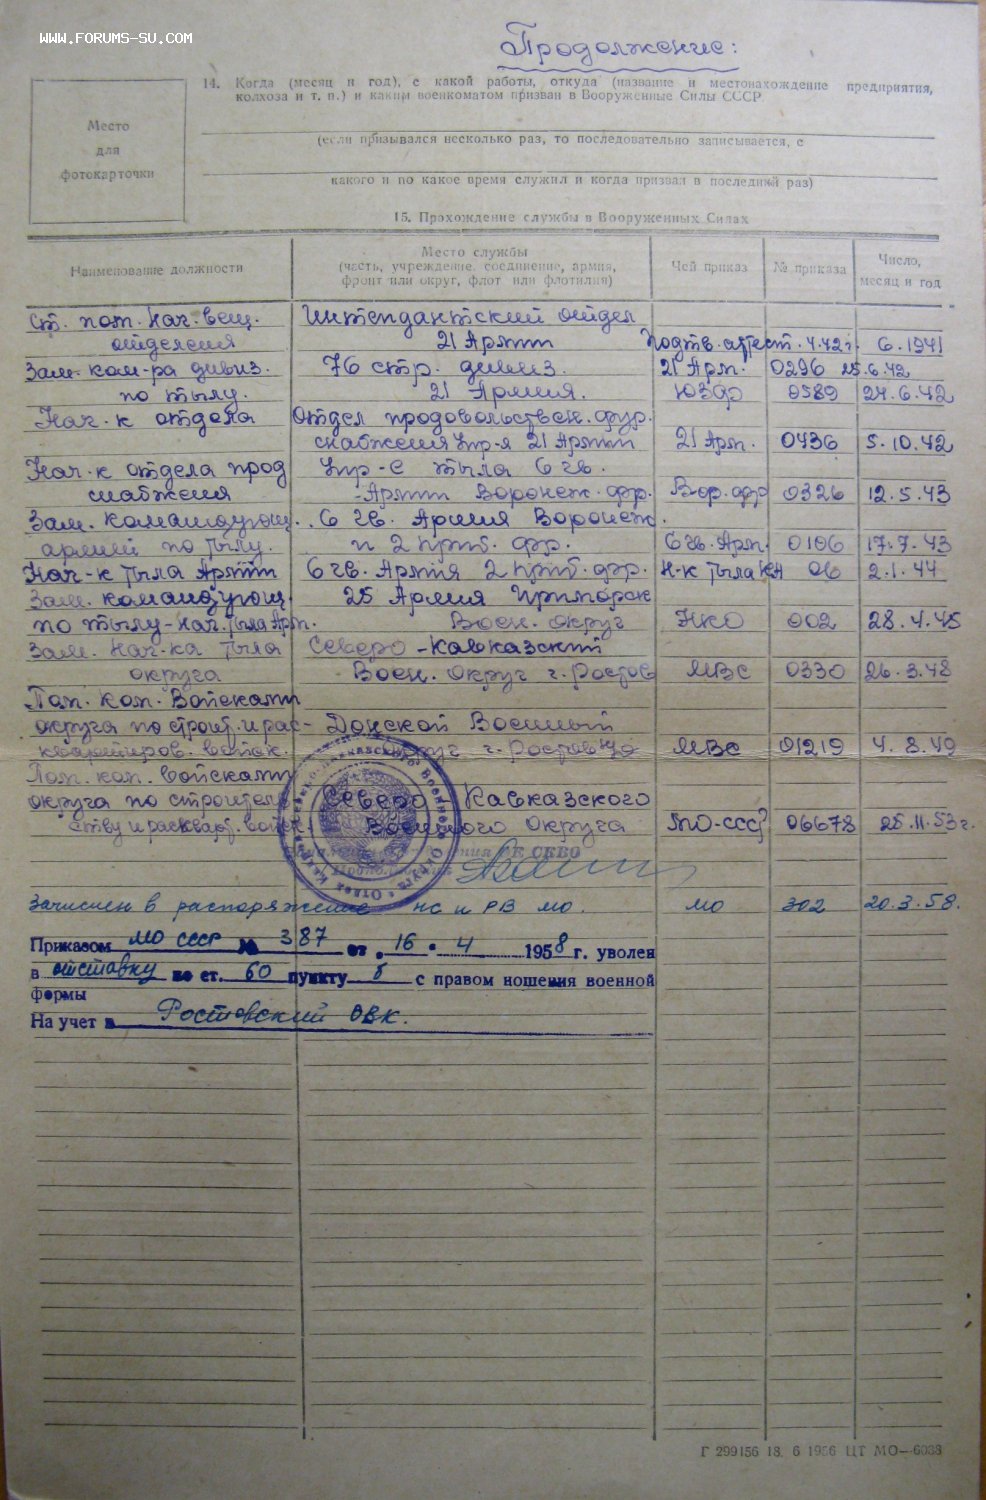 WWW.FORUMS-SU.COM
Продолжение:
14. Когда (месяц и год), с какой работы, откуда (название и местонахождение предприятия,
колхоза и т. п.) и каким военкоматом призван в Вооруженные Силы СССР
Место
для
фотокарточки
(если призывался несколько раз, то последовательно записывается, с
какого и по какое время служил и когда призван в последний раз)
15. Прохождение службы в Вооруженных Силах
Наименование должности
Место службы
(часть, учреждение, соединение, армия,
фронт или округ, флот или флотилия)
Чей приказ
№ приказа
Число,
месяц и год
Ст. пом. нач. вещ. Интендантский отдел
отделения 21 Армии Подтв. аттест. 4.42 г. 6.1941
Зам. ком-ра дивиз. 76 стр. дивиз. 21 Арм. 0296 25.6.42
по тылу. 21 Армия. ЮЗФ 0589 24.6.42
Нач-к отдела Отдел продовольствен. фур.
снабжения Упр-я 21 Армии 21 Арм. 0436 5.10.42
Нач-к отдела прод Упр-е тыла 6 гв.
снабжения Армии Воронеж. фр. Вор. фр 0326 12.5.43
Зам. командующ. 6 гв. Армия Воронеж.
армией по тылу. и 2 приб. фр. 6 гв. Арм. 0106 17.7.43
Нач-к тыла Армии 6 гв. Армия 2 приб. фр. Н-к тыла КА 06 2.1.44
Зам. командующ. 25 Армия Приморск
по тылу-нач. тыла Арм. Воен. округ НКО 002 28.4.45
Зам. нач-ка тыла Северо-Кавказский
округа Воен. Округ г. Ростов МВС 0330 26.3.48
Пом. ком. Войсками
округа по строит. и рас- Донской Военный
квартиров. войск. округ г. Ростов н/до МВС 01219 4.8.49
Пом. ком. войсками
округа по строитель Северо Кавказского
ству и расквар. войск. Военного округа МО-СССР 06678 25.11.53 г.
Зачислен в распоряжение МО 302 20.3.58.
Приказом МО СССР № 387 от 16. 4 1958 г. уволен
в отставку по ст. 60 пункту б с правом ношения военной
формы
На учет в Ростовский ОВК.
Г 299156 18. 6 1956 ЦТ МО—6038